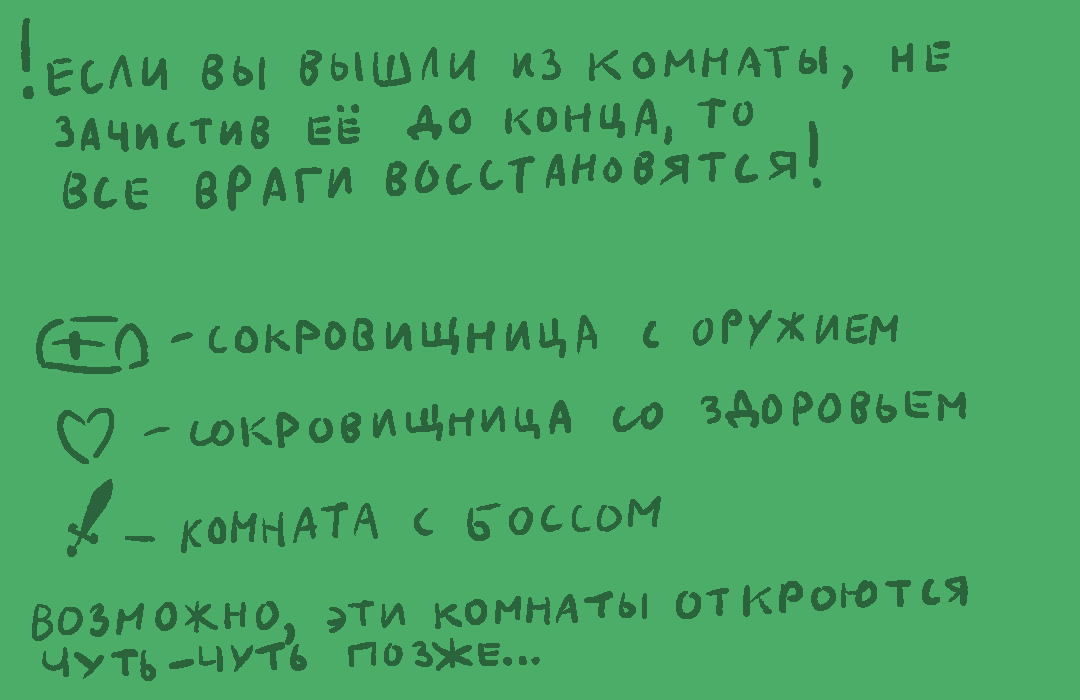 !ЕСЛИ ВЫ ВЫШЛИ ИЗ КОМНАТЫ, НЕ
ЗАЧИСТИВ ЕЁ ДО КОНЦА, ТО
ВСЕ ВРАГИ ВОССТАНОВЯТСЯ!
- СОКРОВИЩНИЦА С ОРУЖИЕМ
- СОКРОВИЩНИЦА СО ЗДОРОВЬЕМ
- КОМНАТА С БОССОМ
ВОЗМОЖНО, ЭТИ КОМНАТЫ ОТКРОЮТСЯ
ЧУТЬ-ЧУТЬ ПОЗЖЕ...